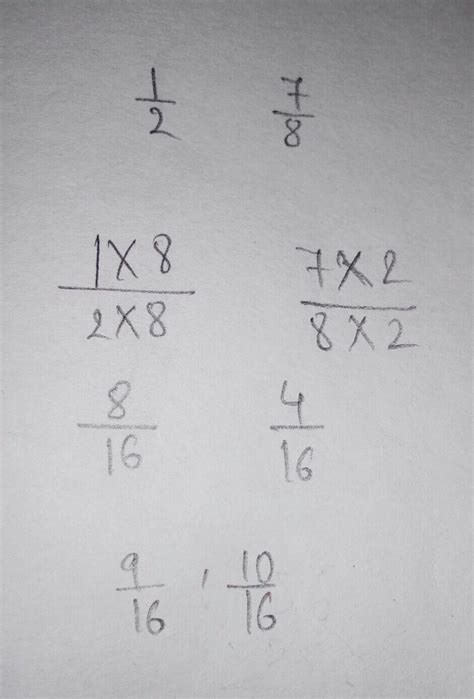 1/2 7/8
1×8/2×8 7×2/8×2
8/16 4/16
9/16 , 10/16